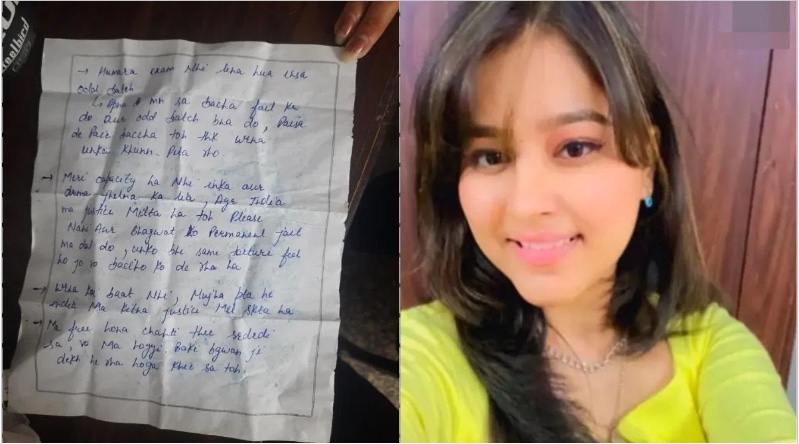 → Humara exam Nhi lena hua issa
odd batch
sa bacha fail kr
do aur odd batch bna do, Paisa
de Paise baccha toh thk wrna
unka khunn Pita rho.
→ Meri capacity ha Nhi inka aur
drma jhelna ka liya, Agr India
ma justice Melta ha toh Please
Nan Aur Bhagwat ko Permanent jail
ma dal do, unko bhi same torture feel
ho jo vo baccho ko de rha ha
→ Wrna koi baat Nhi, Mujha pta he
India Ma ketna justice Mel skta ha
→ Me free hona chahti thee
sa vo Ma hogyi. Baki bgwan ji
dekh he rha hoga khee sa toh.